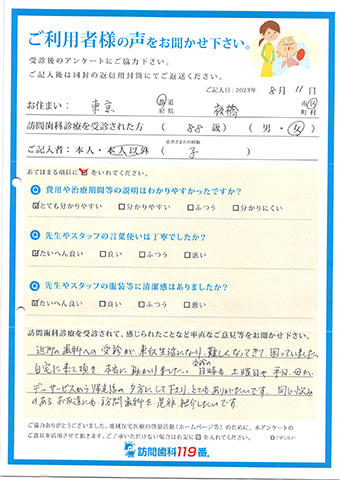 ご利用者様の声をお聞かせ下さい。
受診後のアンケートにご協力下さい。
ご記入後は同封の返信用封筒にてご返送ください。
ご記入日:2023年 8月 11日
お住まい: 東京 都道府県 板橋 市区町村
訪問歯科診療を受診された方 ( 88 歳) ( 男・女 )
患者さまとの続柄
ご記入者:本人・本人以外 ( 子 )
あてはまる項目に☑をいれてください。
Q 費用や治療期間等の説明はわかりやすかったですか?
☑とても分かりやすい □分かりやすい □ふつう □分かりにくい
Q 先生やスタッフの言葉使いは丁寧でしたか?
☑たいへん良い □良い □ふつう □悪い
Q 先生やスタッフの服装等に清潔感はありましたか?
☑たいへん良い □良い □ふつう □悪い
訪問歯科診療を受診されて、感じられたことなど率直なご意見等をお聞かせ下さい。
近所の歯科への受診が車イス生活になり、難しくなってきて困っていました。
自宅に来て頂き本当に助かりました。日時も土曜日や平日、母が
デーサービスから帰宅後の夕方にして下さり、とてもありがたいです。同じ悩み
のあるお友達にも訪問歯科を是非紹介したいです。
ご協力ありがとうございました。地域在宅医療の啓蒙活動(ホームページ等)のために、本アンケートの
ご意見を活用させて頂きます。ご了承いただけない場合は右記に☑を入れてください。 □了承しない
訪問歯科119番®